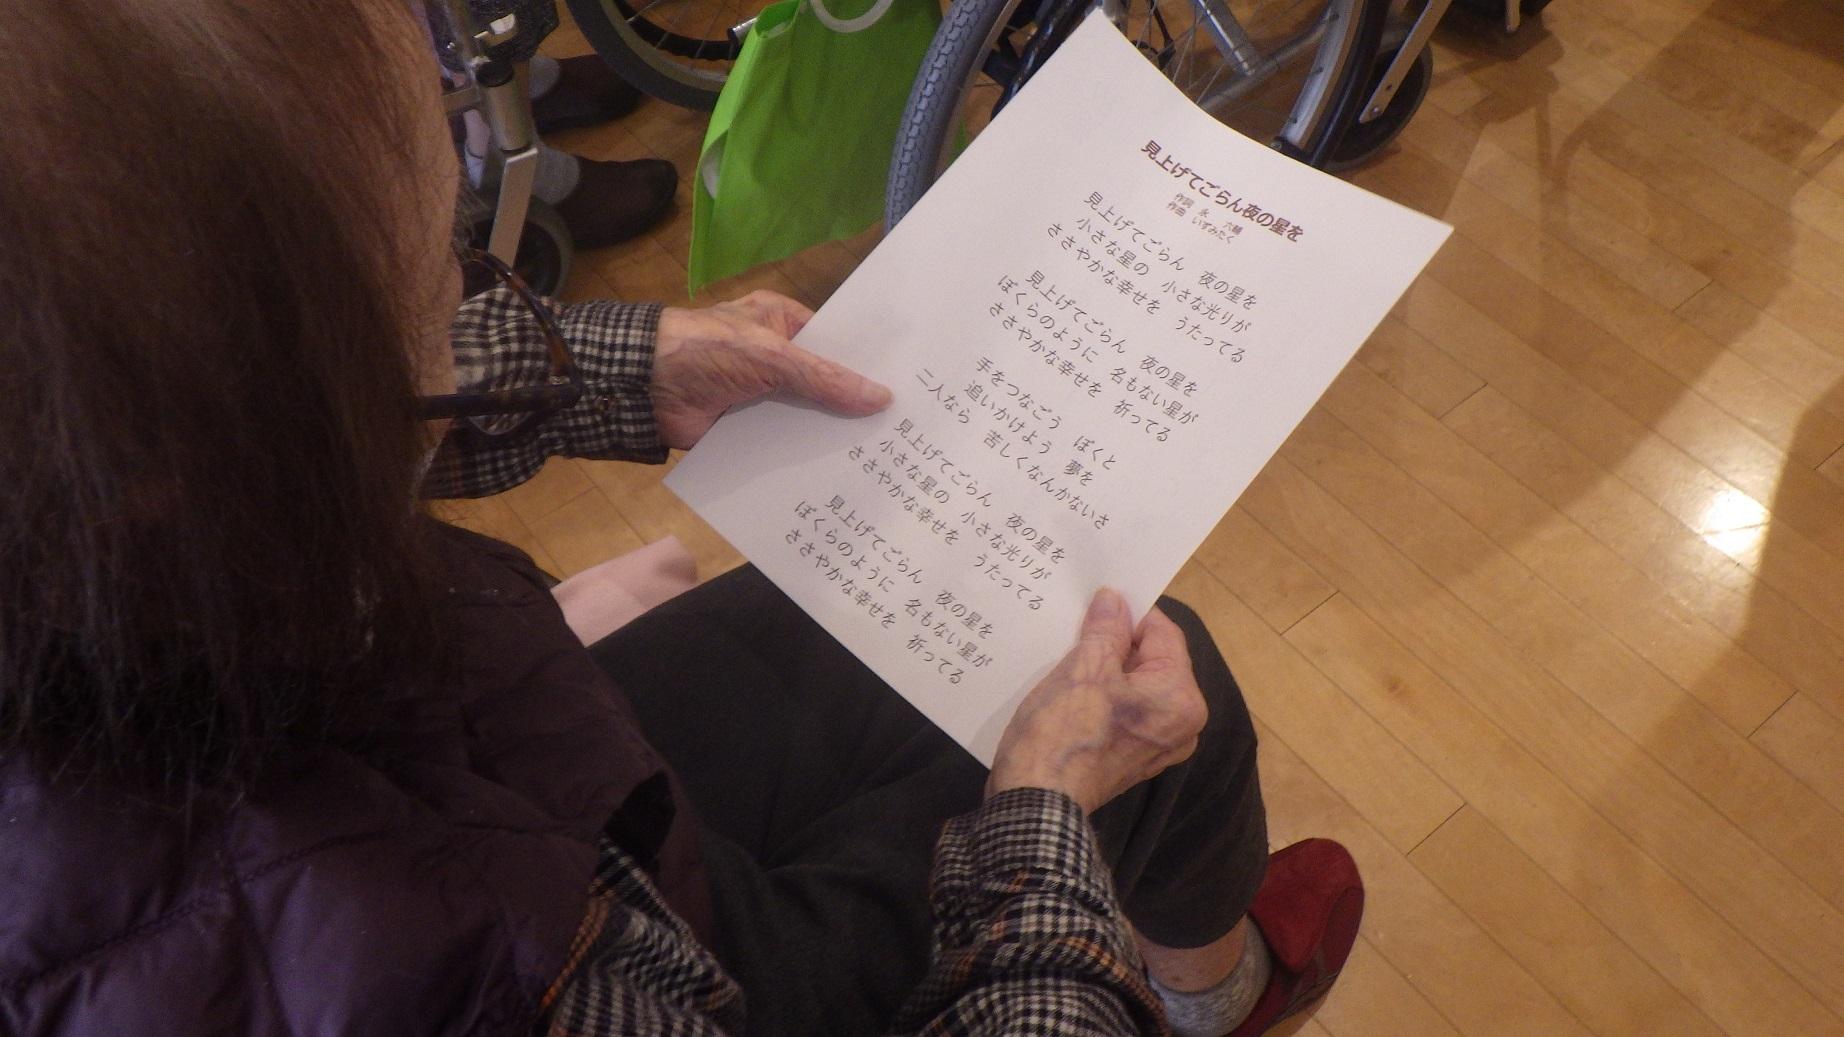 見上げてごらん夜の星を
作詞　永　六輔
作曲　いずみたく
見上げてごらん　夜の星を
小さな星の　小さな光りが
ささやかな幸せを　うたってる
見上げてごらん　夜の星を
ぼくらのように　名もない星が
ささやかな幸せを　祈ってる
手をつなごう　ぼくと
追いかけよう　夢を
二人なら　苦しくなんかないさ
見上げてごらん　夜の星を
小さな星の　小さな光りが
ささやかな幸せを　うたってる
見上げてごらん　夜の星を
ぼくらのように　名もない星が
ささやかな幸せを　祈ってる